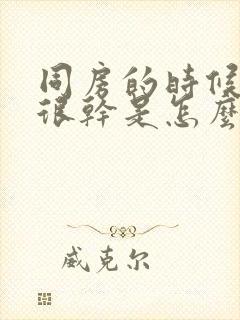 同房的時候
很幹是怎麼
威克尔